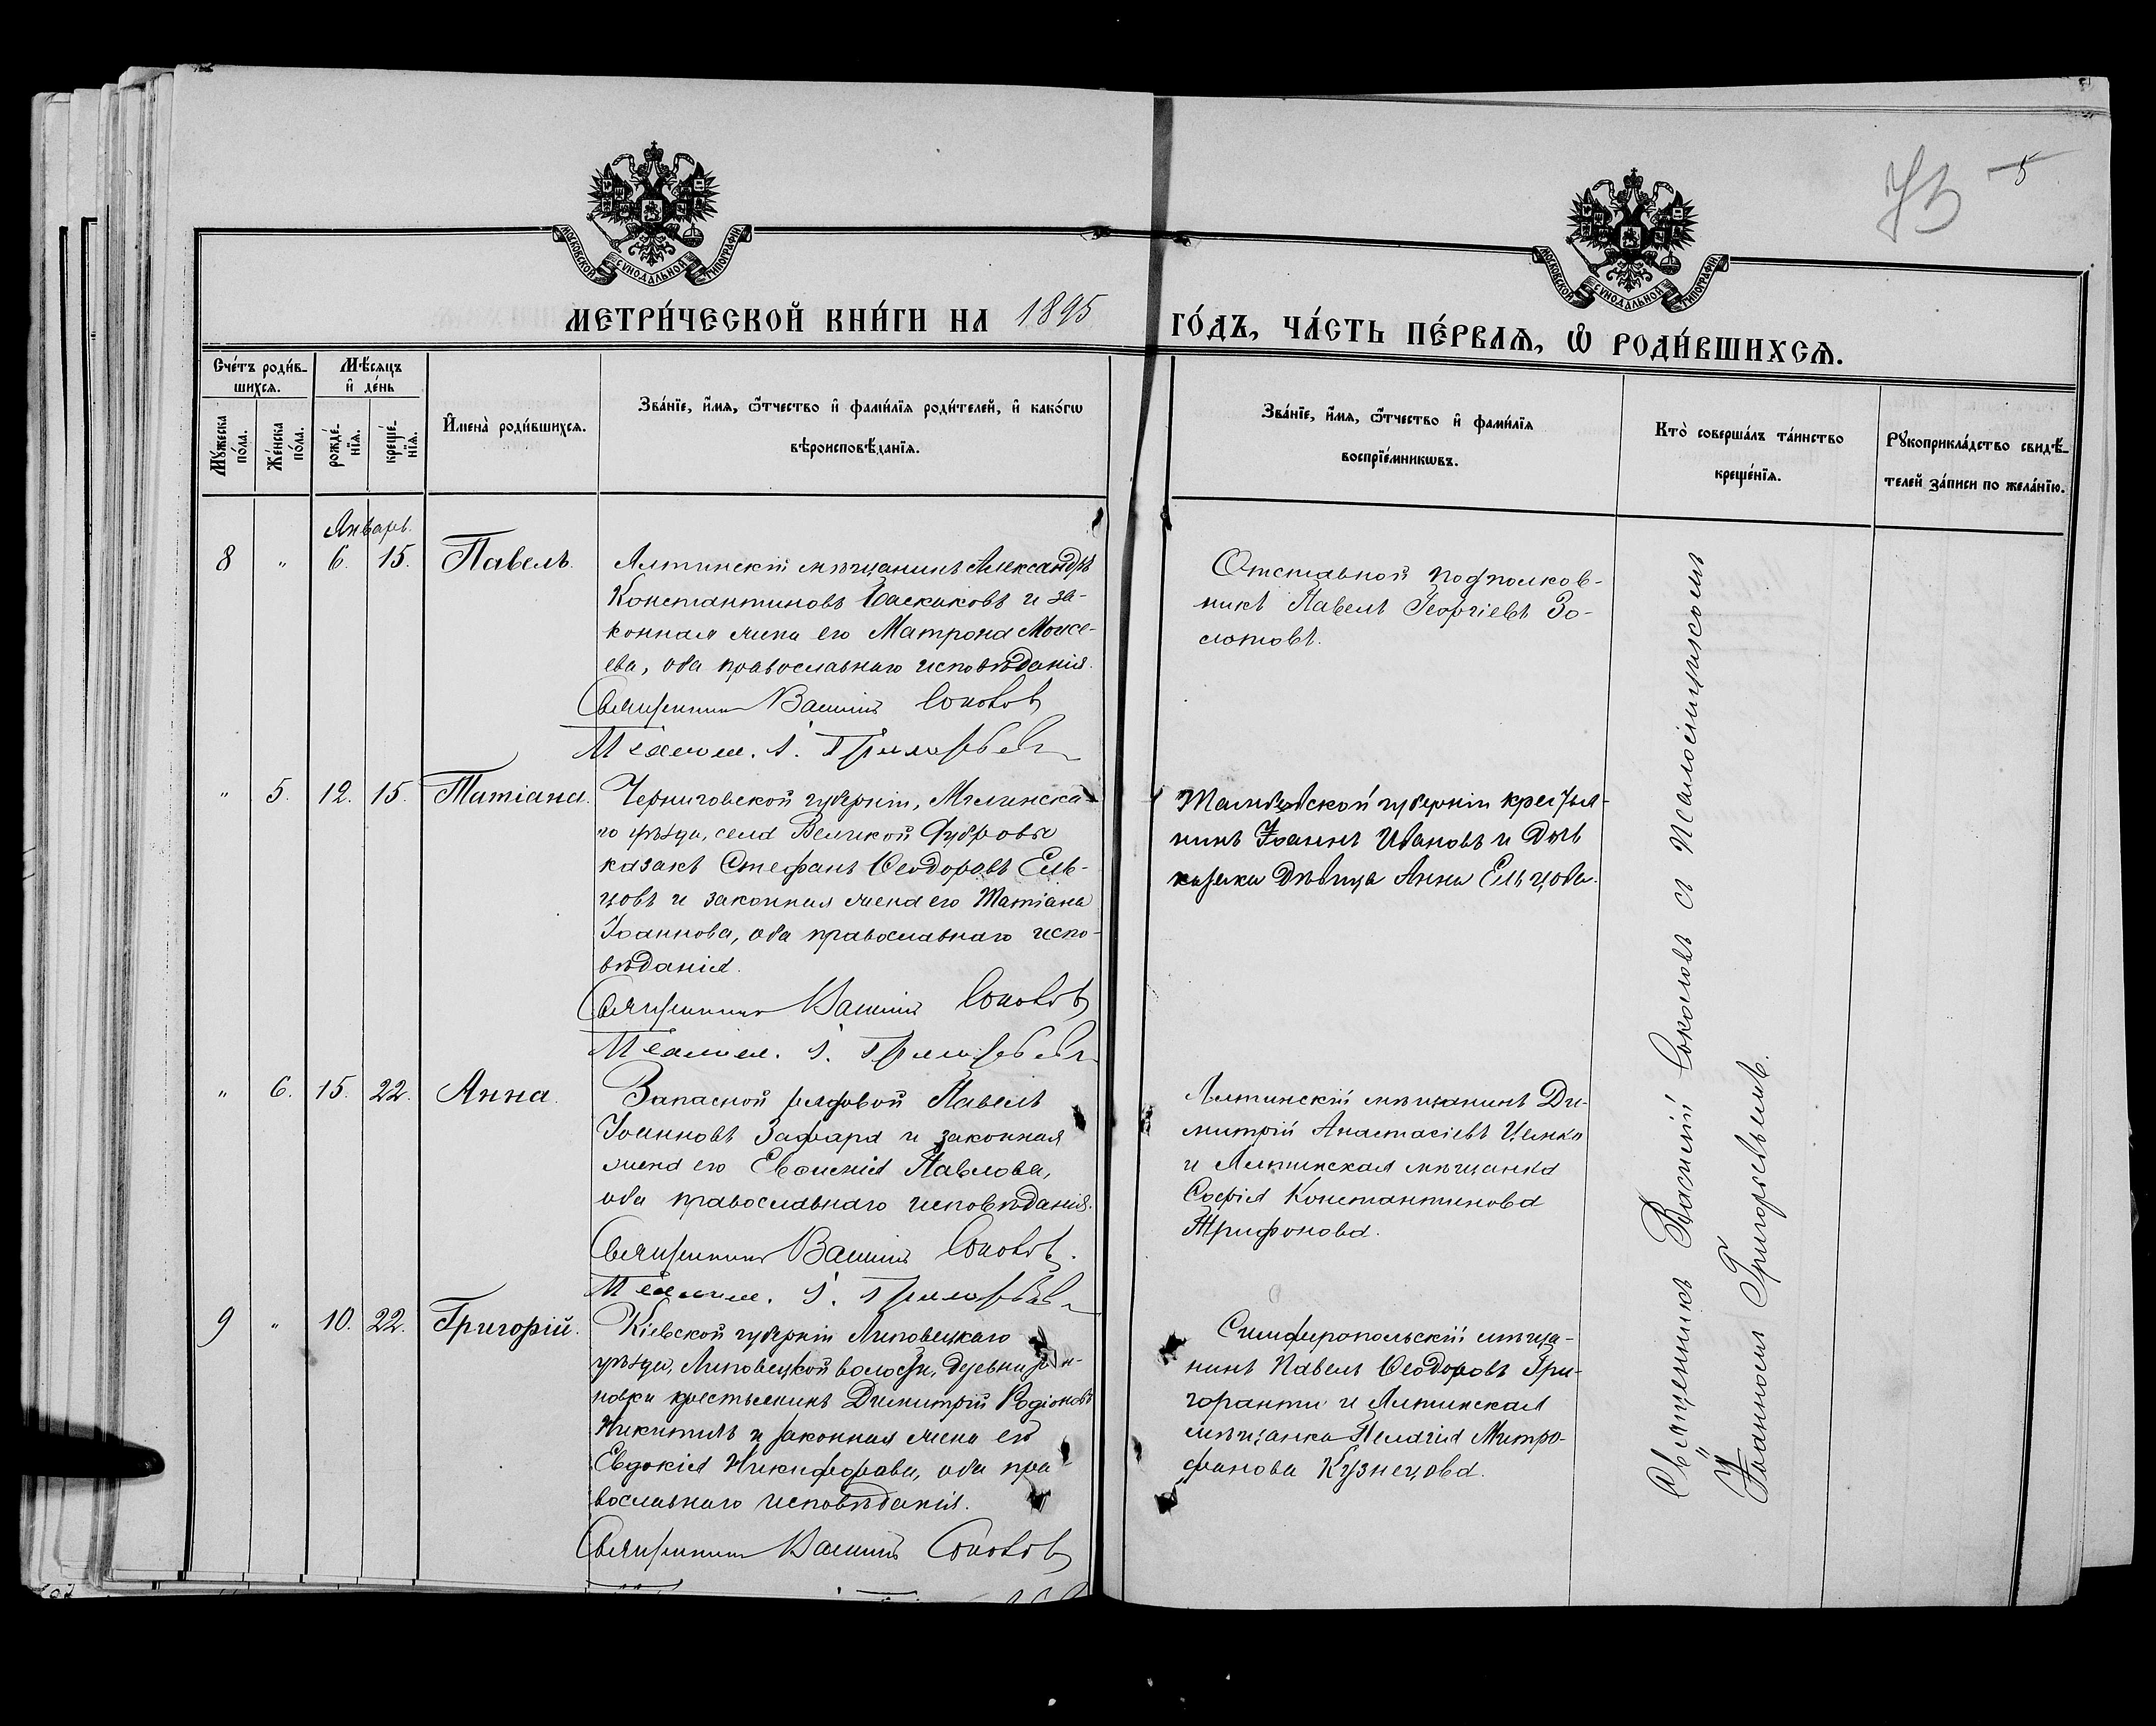 73 5
МОСКОВСКОЙ СѴНОДАЛЬНОЙ ТИПОГРАФІИ
МОСКОВСКОЙ СѴНОДАЛЬНОЙ ТИПОГРАФІИ
МЕТРИ́ЧЕСКОЙ КНИ́ГИ НА 1895
ГО́ДЪ, ЧА́СТЬ ПЕ́РВАѦ, Ѡ҆ РОДИ́ВШИХСѦ.
Сче́тъ роди́в-
шихсѧ.
Мꙋ́жеска по́ла.
Же́нска по́ла.
Мѣ́сѧцъ
и҆ де́нь
рожде́-
нїѧ.
креще́-
нїѧ.
И҆мена̀ роди́вшихсѧ.
Зва́нїе, и҆́мѧ, ѻ҆́тчество и҆ фами́лїѧ роди́телей, и҆ како́гѡ
вѣроисповѣ́данїѧ.
Зва́нїе, и҆́мѧ, ѻ҆́тчество и҆ фами́лїѧ
воспрїе́мникѡвъ.
Кто̀ соверша́лъ та́инство
креще́нїѧ.
Рꙋкоприкла́дство свидѣ́-
телей за́писи по жела́нїю.
Январь.
8 " 6. 15. Павелъ.
Ялтинскій мѣщанинъ Александръ
Константиновъ Баскаковъ и за-
конная жена его Матрона Моисе-
ева, оба православнаго исповѣданія.
Священникъ Василій Соколовъ
Псаломщ. І. Григорьевъ
Отставной подполков-
никъ Павелъ Георгіевъ Зо-
лотовъ.
" 5. 12. 15. Татіана.
Черниговской губерніи, Мглинска-
го уѣзда, села Великой Дубровы
казакъ Стефанъ Ѳеодоровъ Ель-
цовъ и законная жена его Татіана
Іоаннова, оба православнаго испо-
вѣданія.
Священникъ Василій Соколовъ
Псаломщ. І. Григорьевъ
Тамбовской губерніи крестья-
нинъ Іоаннъ Ивановъ и дочь
казака дѣвица Анна Ельцова.
" 6. 15. 22. Анна.
Запасной рядовой Павелъ
Іоанновъ и законная
жена его Павлова,
оба православнаго исповѣданія.
Священникъ Василій Соколовъ.
Псаломщ. І. Григорьевъ
Ялтинскій мѣщанинъ Ди-
митрій Анастасіевъ
и Ялтинская мѣщанка
Софія Константинова
Трифонова.
9 " 10. 22. Григорій.
Кіевской губерніи Липовецкаго
уѣзда, Липовецкой волости, деревни
новки крестьянинъ Димитрій Родіоновъ
и законная жена его
Евдокія Никифорова, оба пра-
вославнаго исповѣданія.
Священникъ Василій Соколовъ
Симферопольскій мѣща-
нинъ Павелъ Ѳеодоровъ Гри-
горанти и Ялтинская
мѣщанка Пелагія Митро-
фанова Кузнецова.
Священникъ Василій Соколовъ съ Псаломщикомъ
Іоанномъ Григорьевымъ.